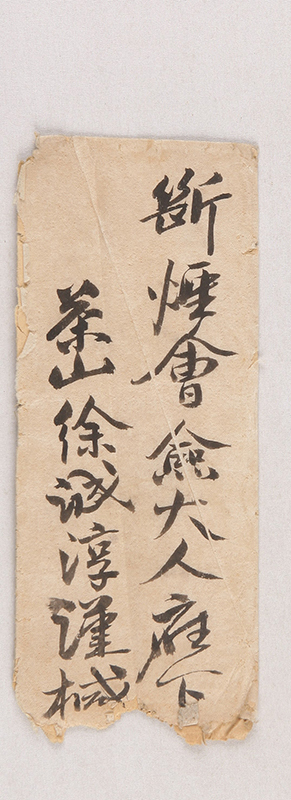 斷煙會 俞大人 座下
茶山 徐誠淳 謹椷